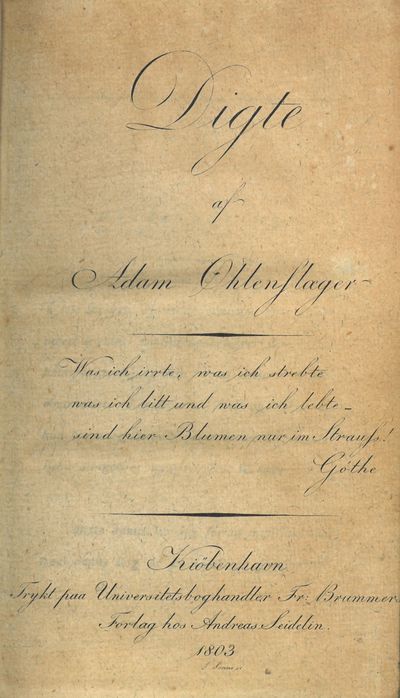 Digte
af
Adam Øhlenslæger
Was ich irrte, was ich strebte
was ich litt und was ich lebte_
sind hier Blumen nur im Strauſs!
Göthe
Kiöbenhavn
Trykt paa Universitetsboghandler Fr: Brummers
Forlag hos Andreas Seidelin.
1803